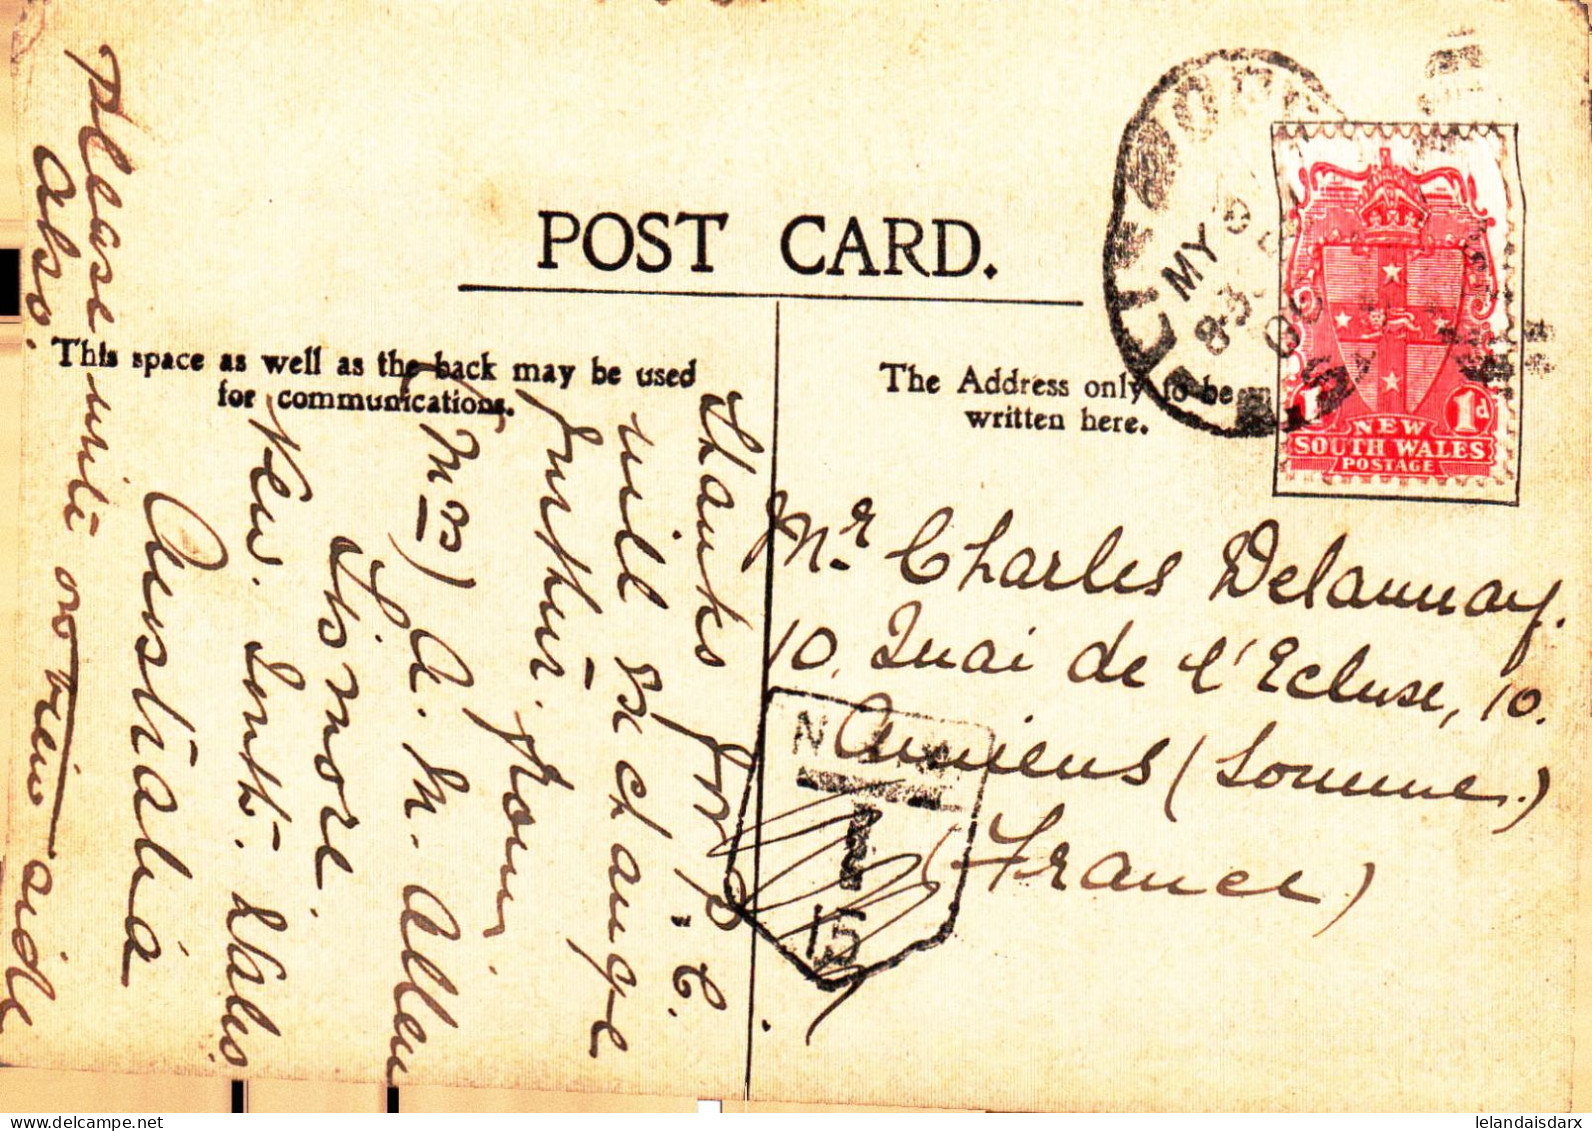 POST CARD.
This space as well as the back may be used
for communications.
The Address only to be
written here.
Thanks for P.C.
will exchange
further. From
(Mrs) A. M. Allen
Lismore.
New. South. Wales
Australia
Please write on view side
also.
Mr. Charles Delaunay.
10. Quai de l'Ecluse, 10.
Amiens (Somme.)
(France)
MY 9
8.3
06
1 1d
NEW
SOUTH WALES
POSTAGE
N
15
lelandaisdarx